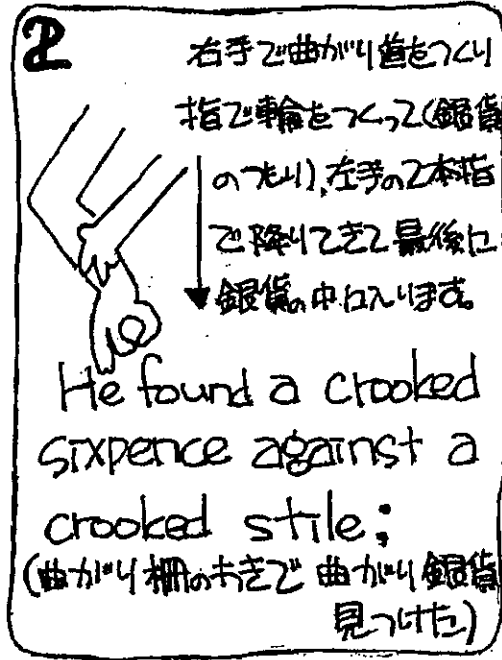 2
右手で曲がり道をつくり
指で輪をつくって(銀貨
のつもり)、左手の2本指
で降りてきて最後に
銀貨の中に入ります。
He found a crooked
sixpence against a
crooked stile;
(曲がり柵のわきで 曲がり銀貨
見つけた)